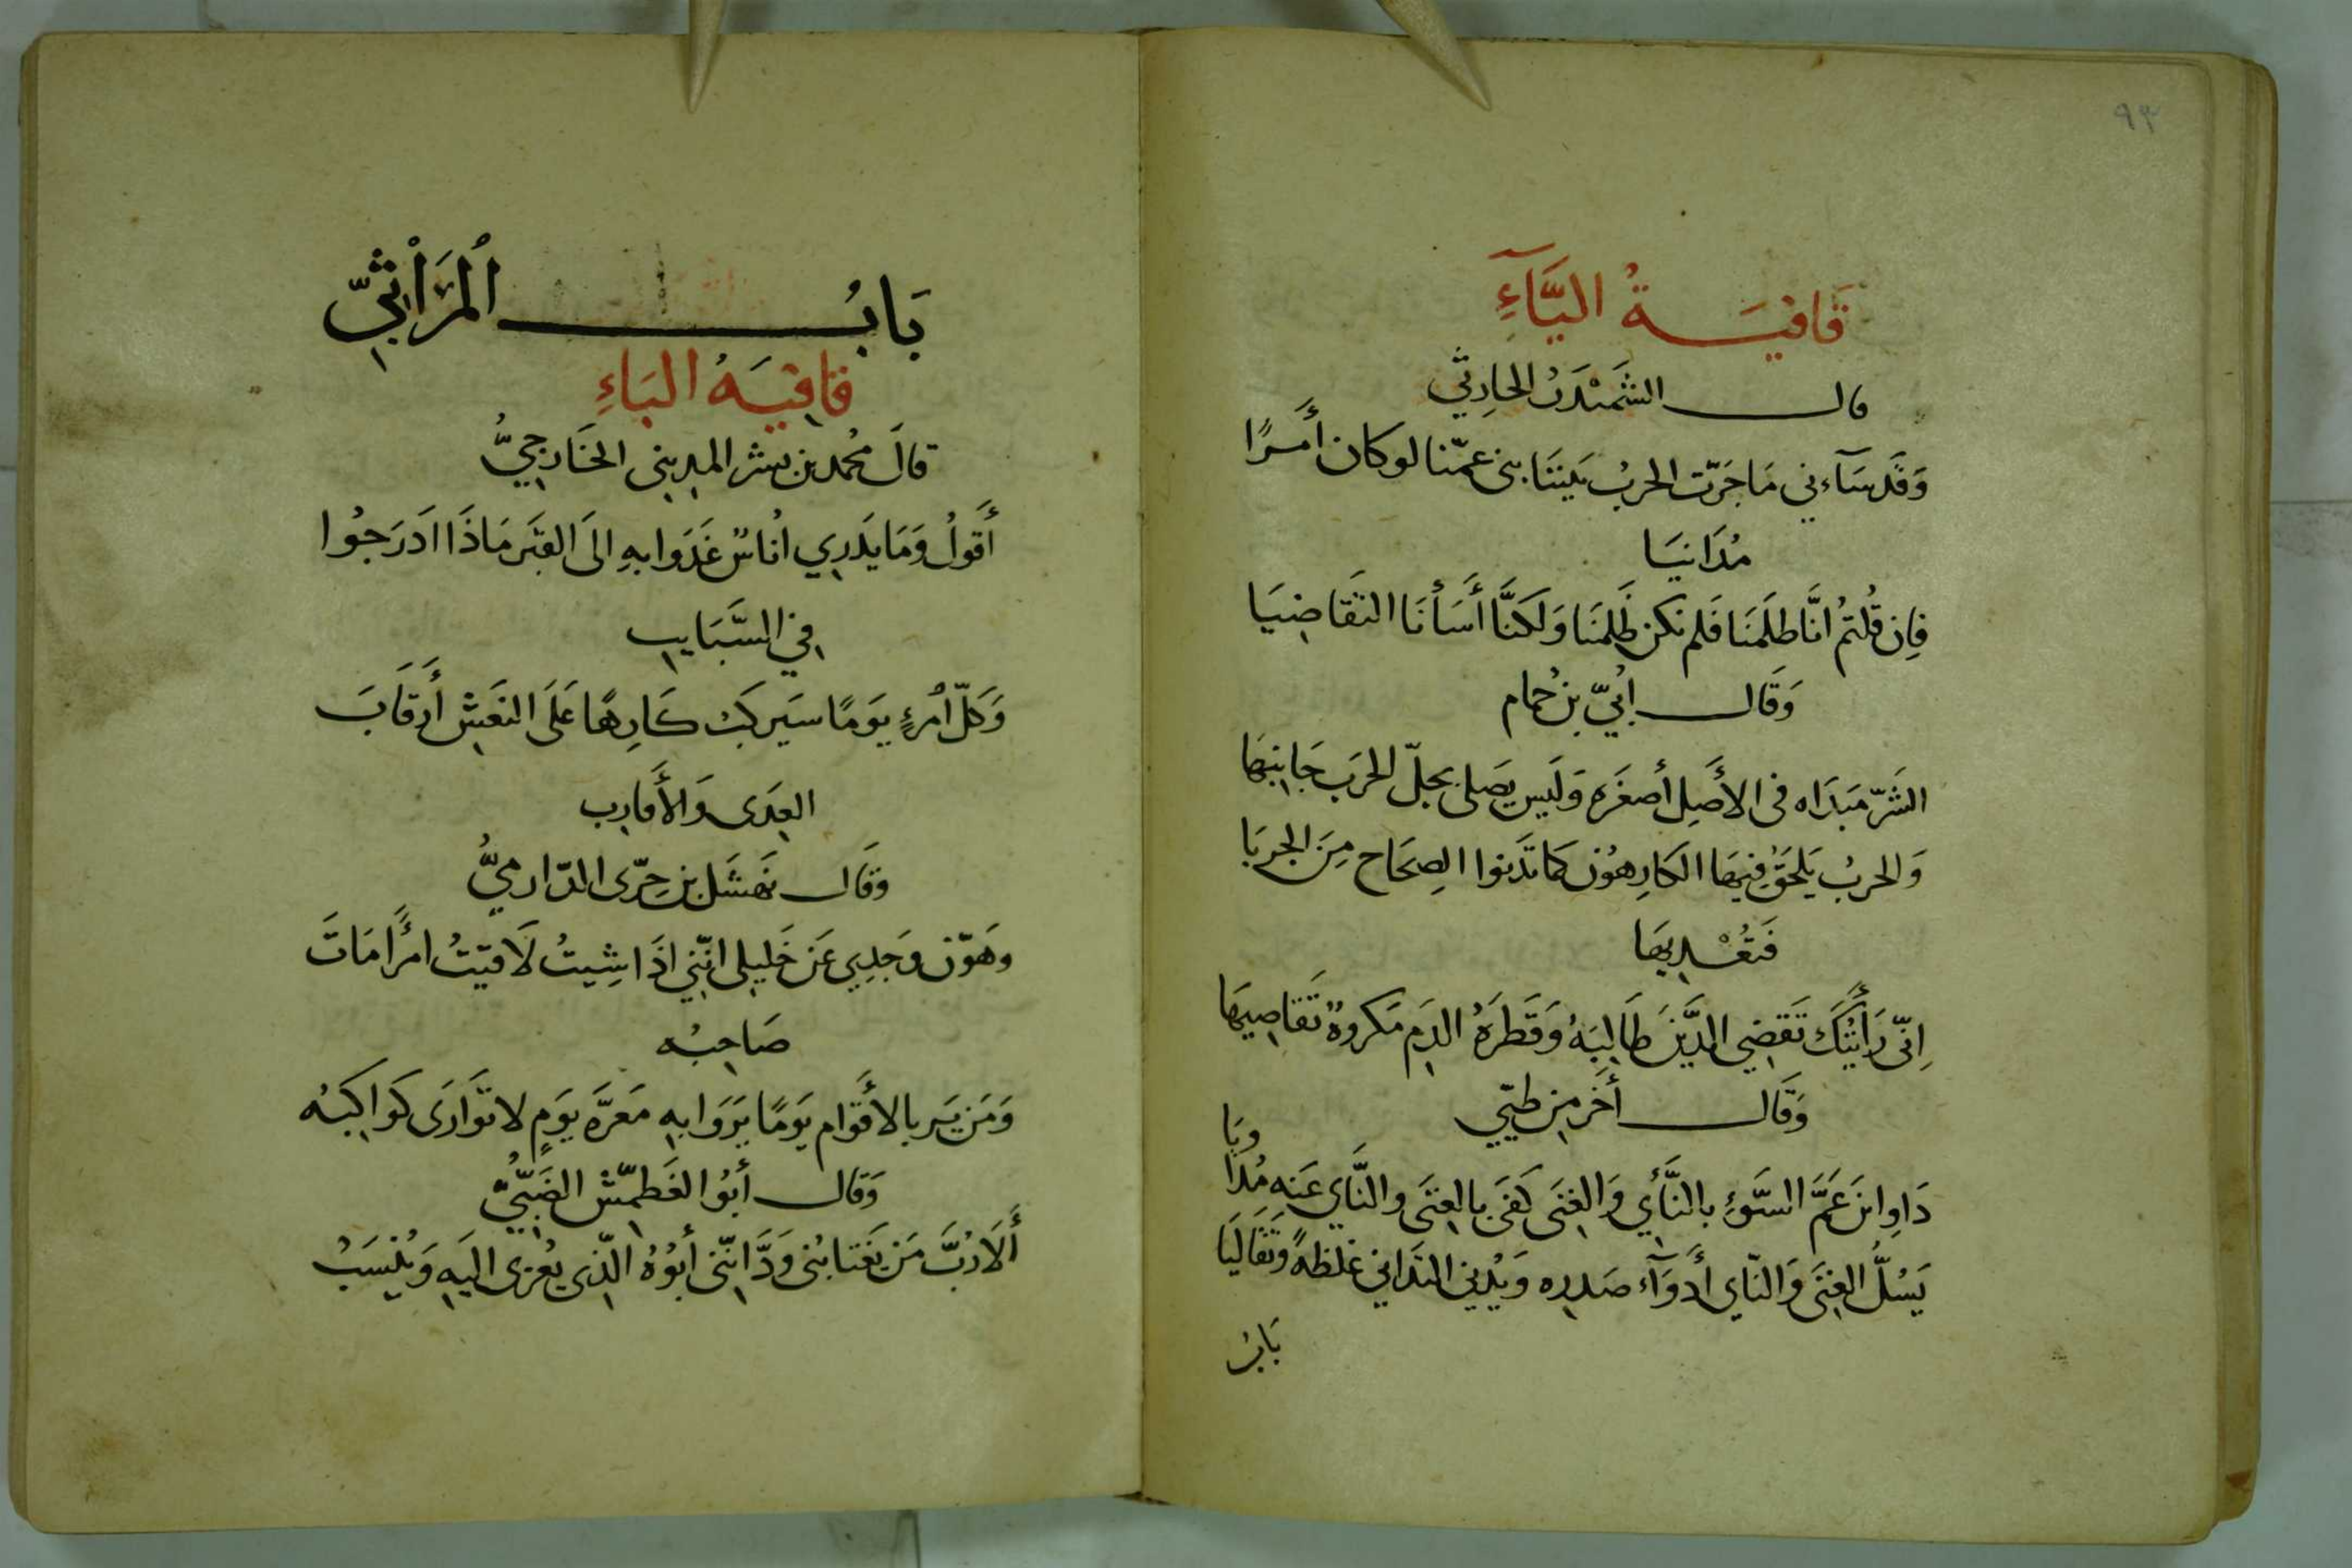 ٩٣
قَافيَـــةُ اليَّآءِ
قالـــ الشَّمَيْدَرُ الحارِثي
وَقَد سَآءني مَا جَرّت الحربُ بَينَنَا بني عمّنا لو كان أَمرًا
مُدَانيَا
فإن قُلتمُ انَّا ظلَمنَا فَلم نكن ظَلمنَا وَلَكنَّا أَسَأنَا التقَاضِيَا
وَقَالـــ اُبيّ بن حُمام
الشَّرّ مَبدَاه في الأَصِل أصغَره وَلَيس يَصَلى بحلّ الحرَب جَانيَها
وَالحربُ يَلحَقُ فيهَا الكَارِهوُن كمَا تَدنوا الصِحَاح مِنَ الجربَا
فَتعُْديهَا
اِنّي رَأَيتُكَ تَقضِي الدَّينَ طَالِبَهُ وَقَطرَةُ الدَمِ مَكروهٌ تَقَاضِيهَا
وَقَالـــ أَخَر مِن طَيّي
دَاوِ ابنَ عَمَّ السَّوَءِ بالنَّأيِ وَالغِنَى كَفَى بالغِنَى والنَّايِ عَنهِ مُدَا
وِيَا
يَسُلُّ الغِنَى وَالنّاي أَدوَآء صَدره وَيُدني التَدَاني غلظةً وَتَقَاليَا
بَابُ
بَابُـــ اْلمَرَاْثيّ
قافِيَهُ البَاءِ
قالَ مُحمد بن بشر المديني الخَارِجيُّ
أَقولُ وَمَا يَدرِي اُناسٌ غَدَوا بهِ الىَ القَبَر مَاذَا ادَرَجُوا
في السَّبَايبِ
وَكلّ امُرءٍ يوَمًا سَيَركَبُ كَارِهًا عَلىَ النعَشِ أَرقَابَ
العِدَى وَالأَقارِب
وَقَالـــ نَهشَل بن حِرّى الدّارميُّ
وهَوّن وَجَدِي عَن خَليِلى انّني اذَا شِيتُ لَاقيَتُ امرًَأ مَاتَ
صَاحبُه
وَمَن يَرَ بالأَقَوامِ يَومًا يَرَوا بهِ مَعرَّه يوَمٍ لا تَوَارَى كَوَاكبُه
وَقالـــ أبوُ الغَطمّش الضَبّيُّ
أَلَا رُبَّ مَن يَغتَابُنى وَدَّ انّنى أبوُهُ الّذِى يُعزى اليَهِ وَيُنسَبُ